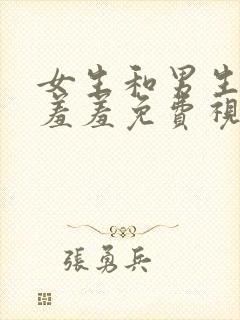 女生和男生
羞羞免費視
張勇兵